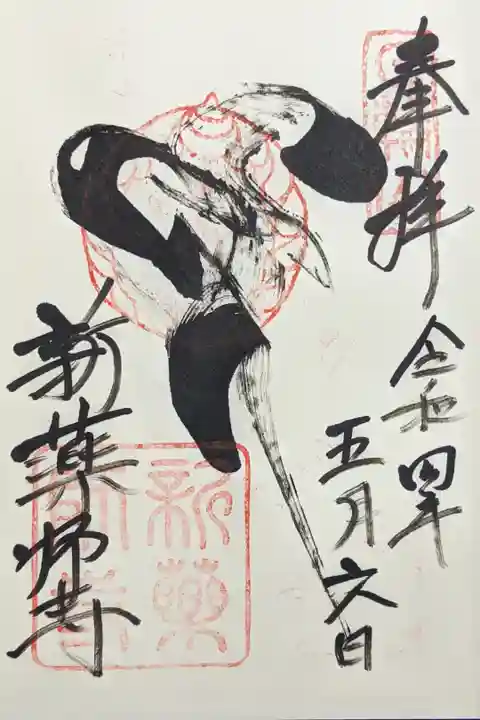 奉拝
令和四年
五月六日
新薬師寺
新薬
師寺